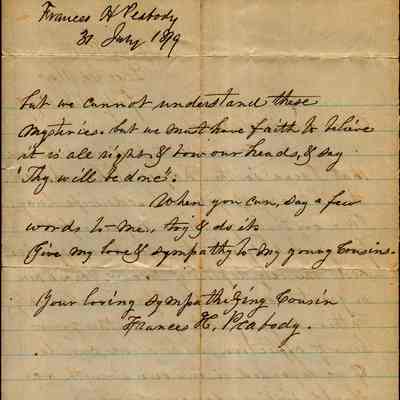 Frances H Peabody
31 July 1879
but we cannot understand these
mysteries. but we must have faith to believe
it is all right & bow our heads, & say
"Thy will be done".
When you can, say a few
words to me, try & do it.
Give my love & sympathy to my young Cousins.
Your loving sympathizing Cousin
Frances H. Peabody.